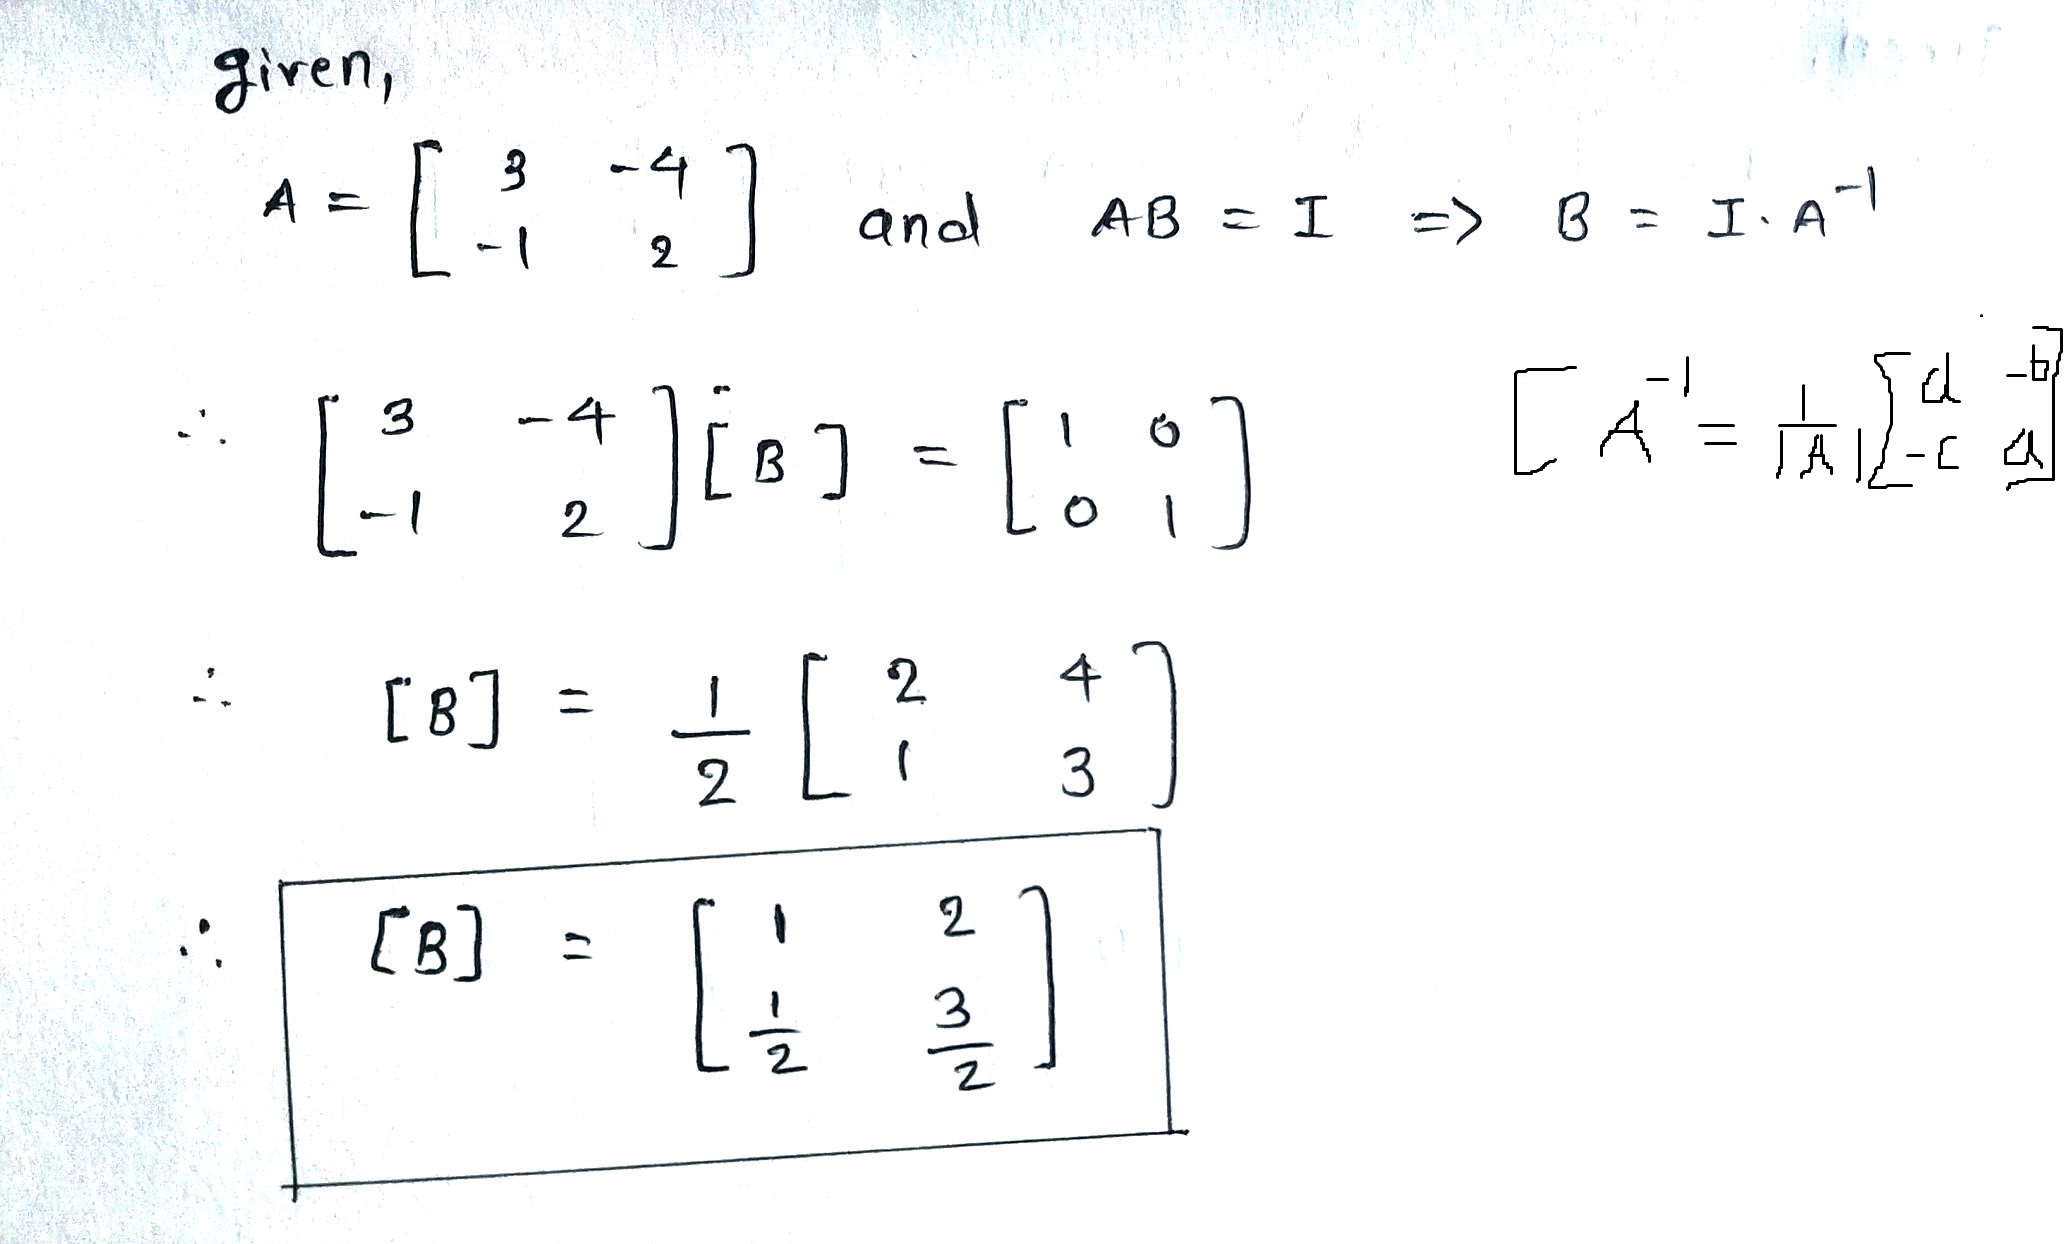 given,
A = [ 3 -4 ; -1 2 ] and AB = I => B = I. A^-1
∴ [ 3 -4 ; -1 2 ] [ B ] = [ 1 0 ; 0 1 ] [ A^-1 = 1/|A| [ d -b ; -c a ]
∴ [B] = 1/2 [ 2 4 ; 1 3 ]
∴ [B] = [ 1 2 ; 1/2 3/2 ]